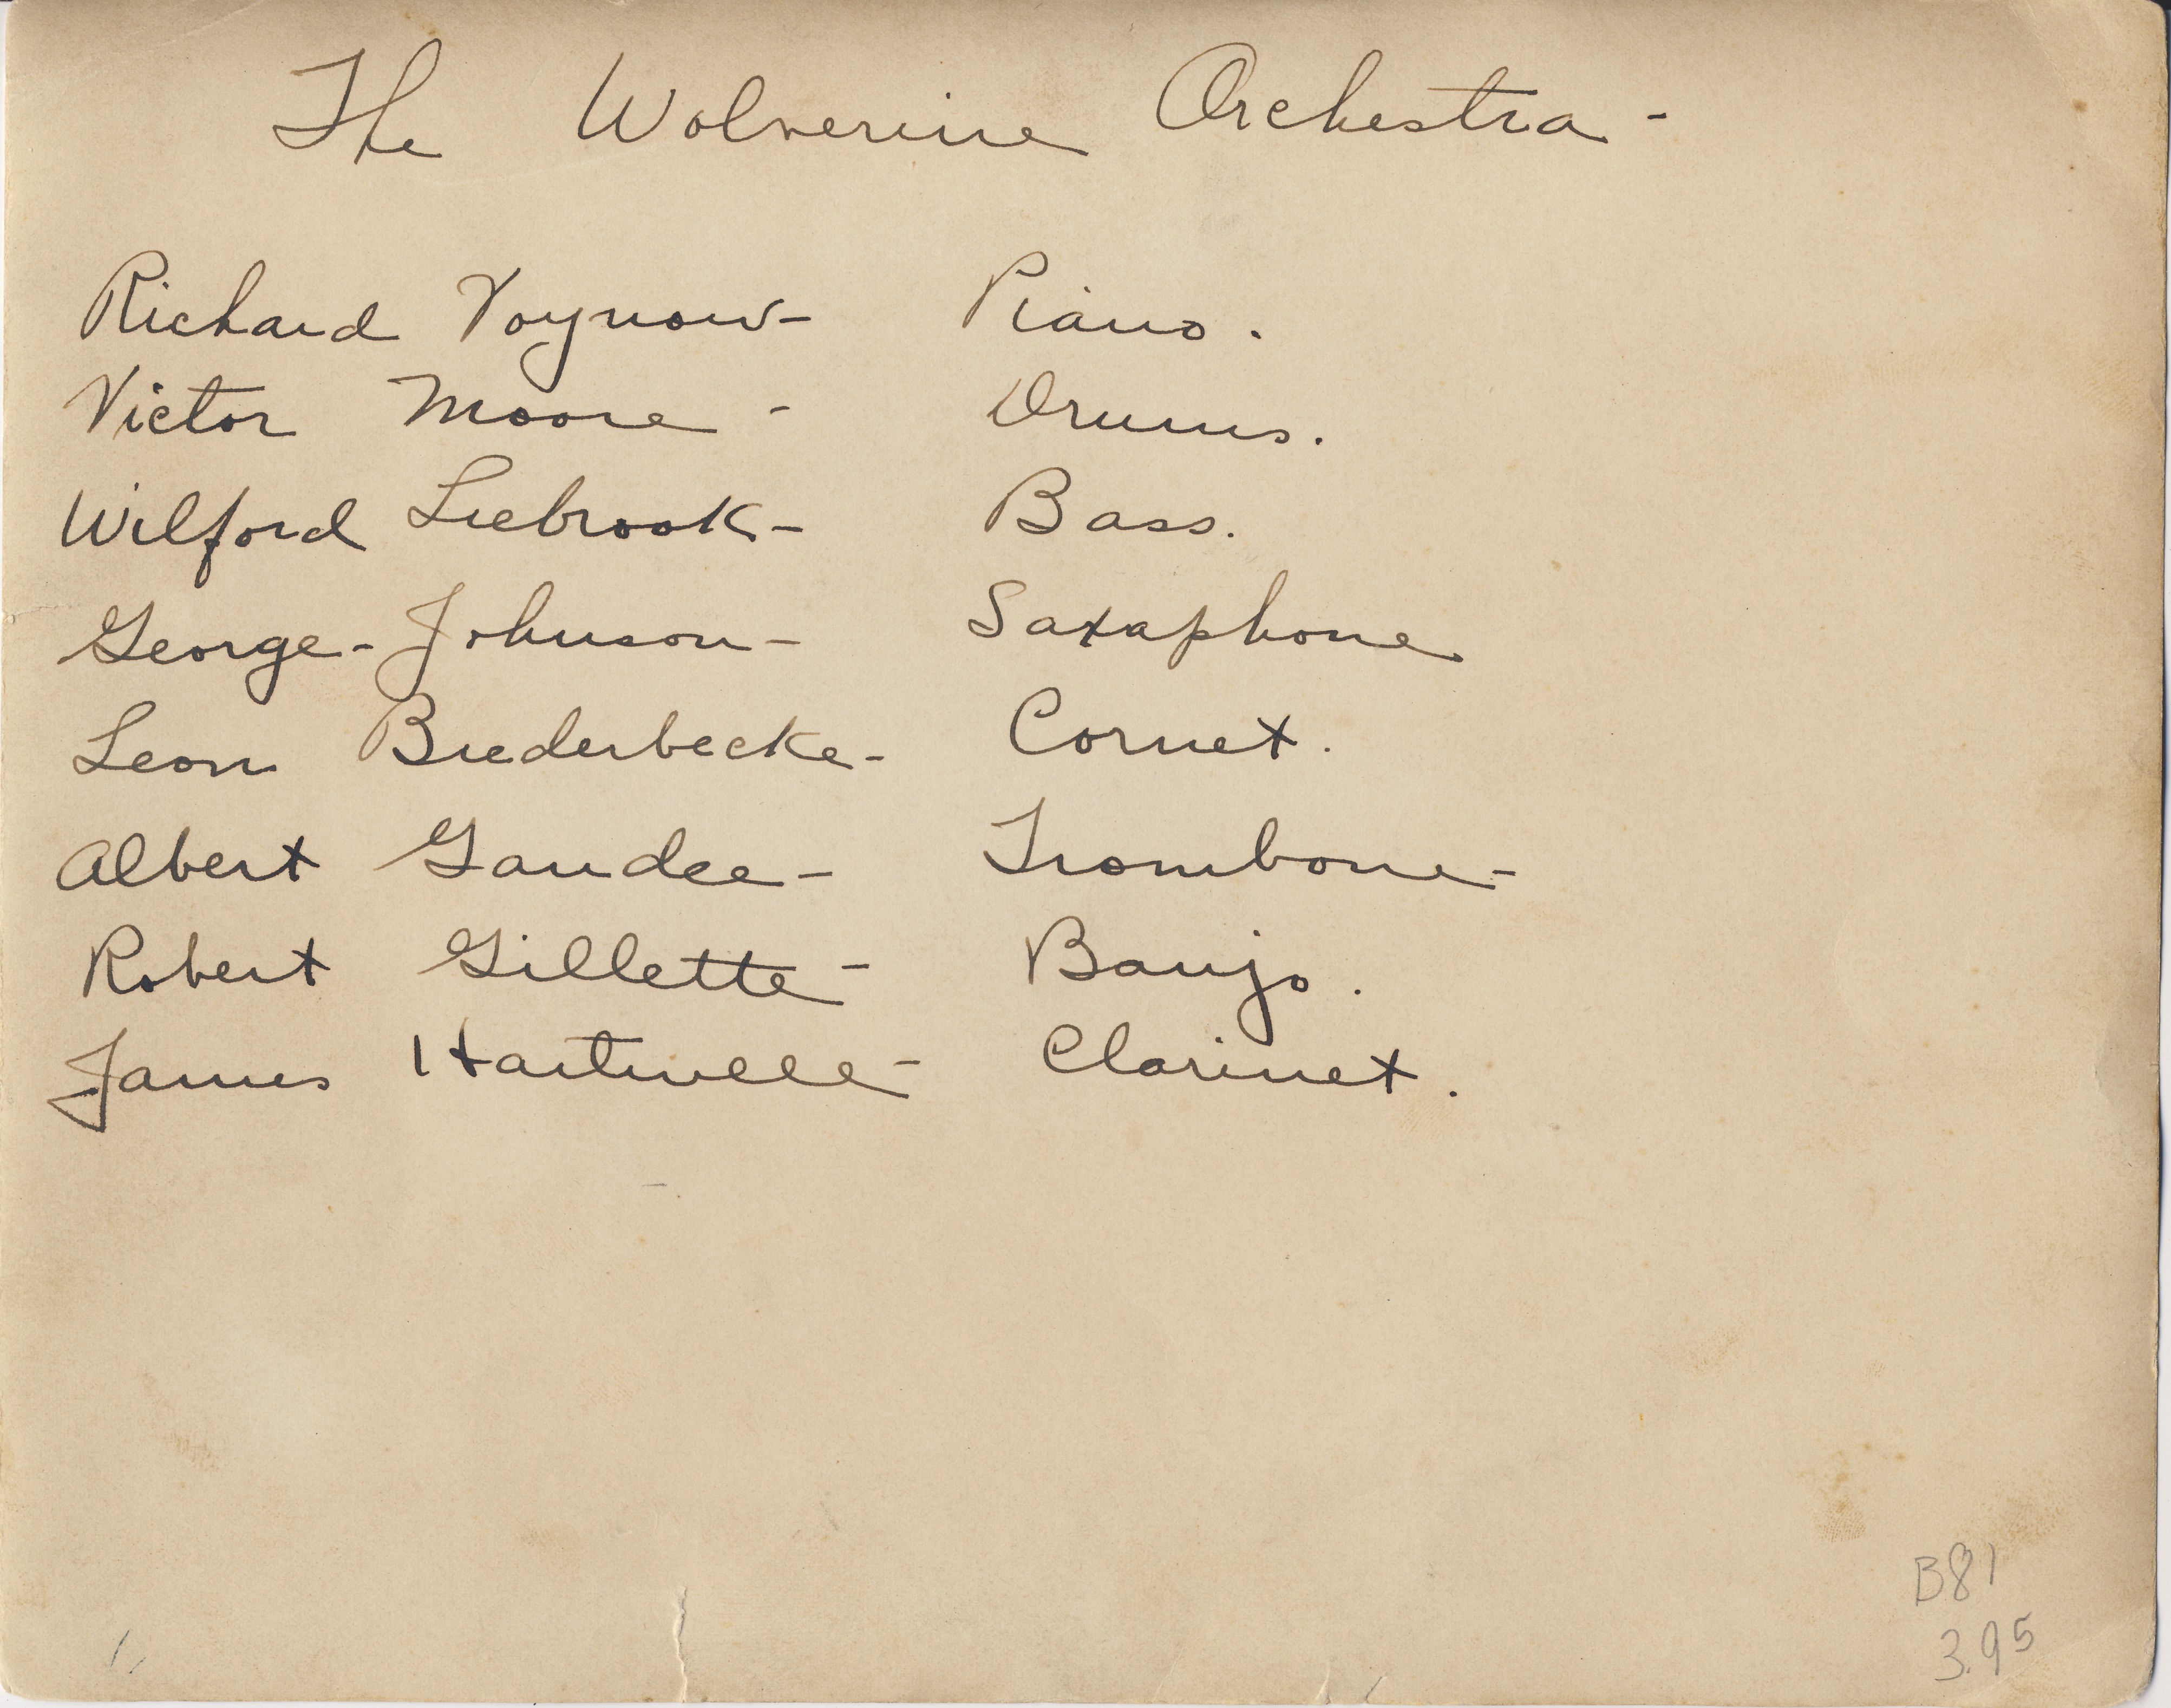 The Wolverine Orchestra -
Richard Voynow - Piano.
Victor Moore - Drums.
Wilford Liebrook - Bass.
George - Johnson - Saxaphone.
Leon Biederbecke - Cornet.
Albert Gandee - Trombone -
Robert Gillette - Banjo.
James Hartwell - Clarinet.
B81
3.95